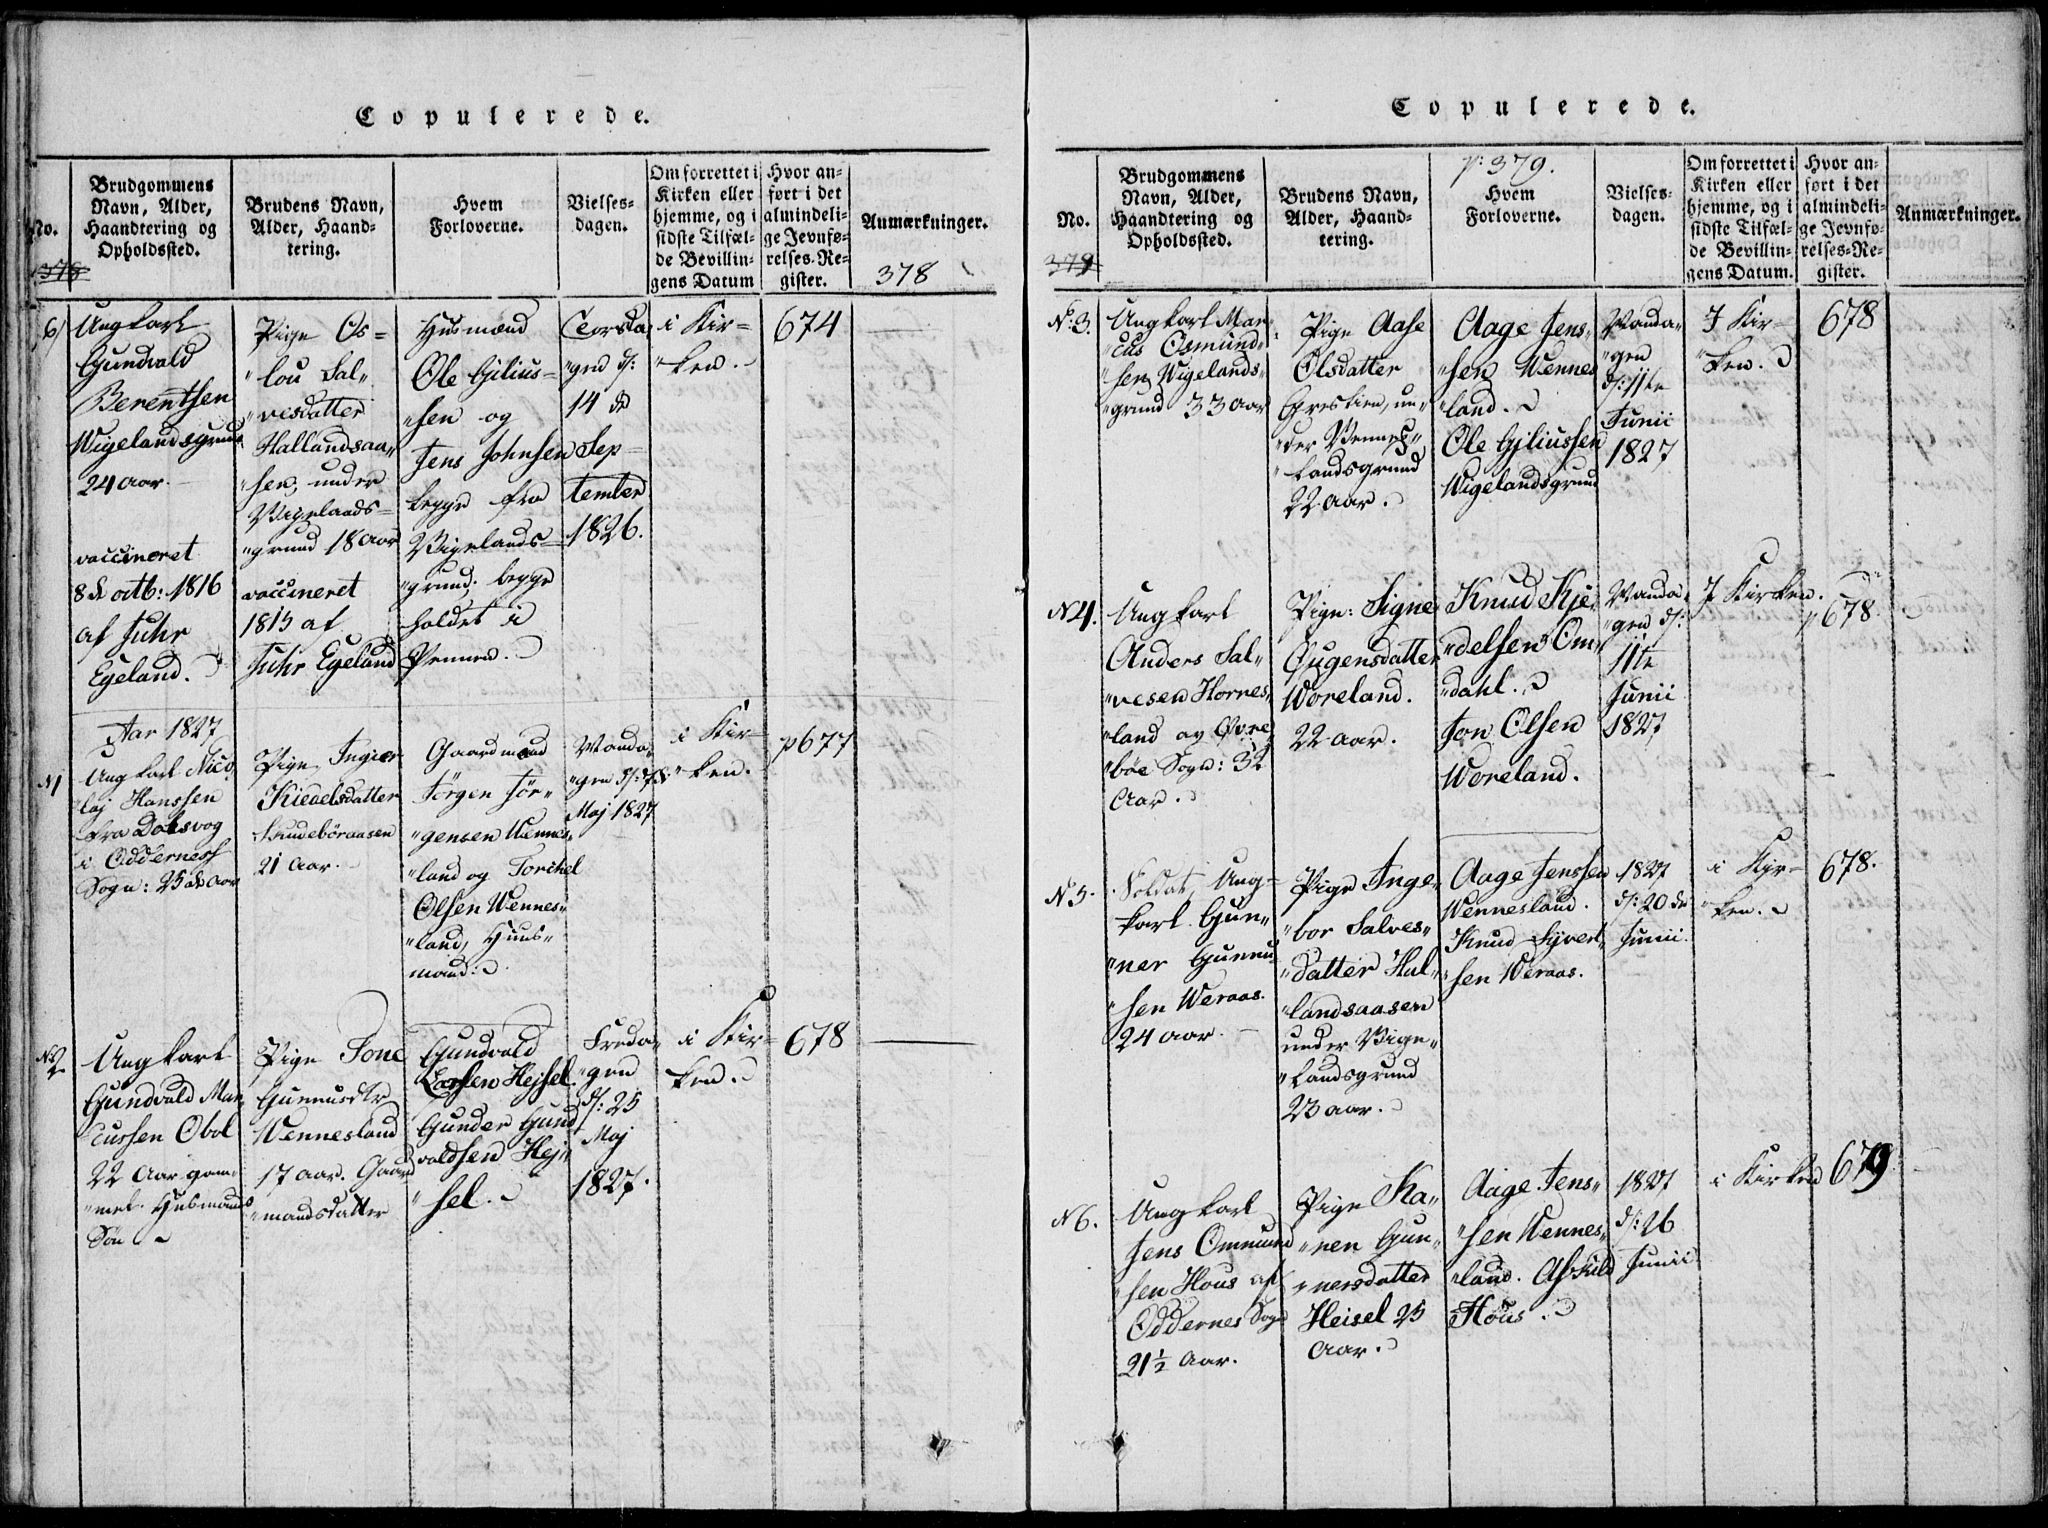 Copulerede.
No.
Brudgommens
Navn, Alder,
Haandtering og
Opholdssted.
Brudens Navn,
Alder, Haand-
tering.
Hvem
Forloverne.
Vielses-
dagen.
Om forrettet i
Kirken eller
hjemme, og i
sidste Tilfæl-
de Bevillin-
gens Datum
Hvor an-
ført i det
almindeli-
ge Jevnfø-
relses-Re-
gister.
Anmærkninger.
378
378
6/
Ungkarl
Gundvald
Berentsen
Wigelandsgrund
24 aar.
vaccineret
8de octb: 1816
af Juhr
Egeland.
Pige Os-
lou Sal-
vesdatter
Hallandsaa-
sen, under
Vigelands-
grund 18 aar
vaccineret
1815 af
Juhr Egeland
Husmænd
Ole Gilius-
sen og
Jens Johnsen
begge fra
Vigelands-
grund; begge
holdet i
Vennes.
Torsda-
gen d:
14 de
Sep-
tember
1826.
i Kir-
ken.
674
Aar 1827
N1
Ungkarl Nico-
laj Hanssen
fra Dolsvog
i Odderness
Sogn: 25 de aar
Pige, Ingier
Kieoelsdatter
Skudeböraasen
21 Aar.
Gaardmand
Jörgen Jör-
gensen Wennes-
land og Torchel
Olsen Wennes-
land, Huus-
mand.
Manda-
gen d: 78:
Maj 1827
i Kir-
ken.
p677
No2
Ungkarl
Gundvald Mar-
cussen Obol
22 Aar gam-
mel. Husmands
Søn
Pige Tone
Gunnusdtr
Wennesland
17 aar. Gaard
mandsdatter
Gundvald
Larsen Hejsel
Gunder Gund
valdsen Hej-
sel.
Freda-
gen
d: 25
Maj
1827.
i Kir-
ken.
678
Copulerede.
p: 379.
No.
Brudgommens
Navn, Alder,
Haandtering og
Opholdssted.
Brudens Navn,
Alder, Haand-
tering.
Hvem
Forloverne.
Vielses-
dagen.
Om forrettet i
Kirken eller
hjemme, og i
sidste Tilfæl-
de Bevillin-
gens Datum.
Hvor an-
ført i det
almindeli-
ge Jevnfø-
relses-Re-
gister.
Anmærkninger.
379
No: 3.
Ungkarl Mar-
cus Osmund-
sen Wigelands-
grund 33 aar
Pige Aase
Olsdatter
Grestien, un-
der Vennes-
landsgrund
22 aar.
Aage Jens-
sen Wennes
land.
Ole Gjliussen
Wigelandsgrund
Manda-
gen
d: 11te
Junii
1827
J Kir-
ken.
678
N4.
Ungkarl
Anders Sal-
vesen Hornes-
land av Øvre-
böe Sogn: 32
Aar.
Pige: Signe
Ougensdatter
Woreland.
22 aar.
Knud Kje-
delsen Om-
dahl.
Jon Olsen
Woreland.
Manda-
gen d:
11te
Junii
1827
J Kirken.
p678.
N5.
Soldat, Ung-
karl Gun-
ner Gunnu-
sen Weraas.
24 aar.
Pige Inge-
bor Salves-
datter Hal-
landsaasen
under Vige-
landsgrund
23 aar.
Aage Jenssen
Wennesland.
Knud Syvert-
sen Weraas.
1827
d: 20de
Junii.
i Kir-
ken.
678.
N6.
Ungkarl
Jens Ommund
sen Hous af
Oddernes Sogn
21½ Aar.
Pige Ka-
ren Gun-
nersdatter
Heisel 25
Aar.
Aage Jens-
sen Wennes-
land. Aschild
Hous.
1827
d: 26
Junii
i Kirken
679